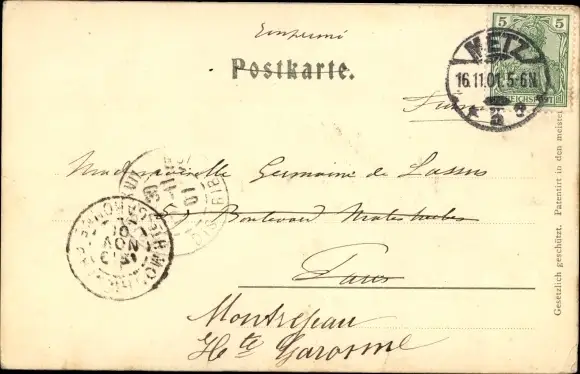 5 5
METZ
Imprimé
Postkarte.
16.11.01.5-6N.
REICHSPOST
Mademoiselle Germaine de Lassus
Boulevard Malesherbes
Paris
Montrejeau
Hte Garonne
NOV
01
Gesetzlich geschützt. Patentirt in den meisten